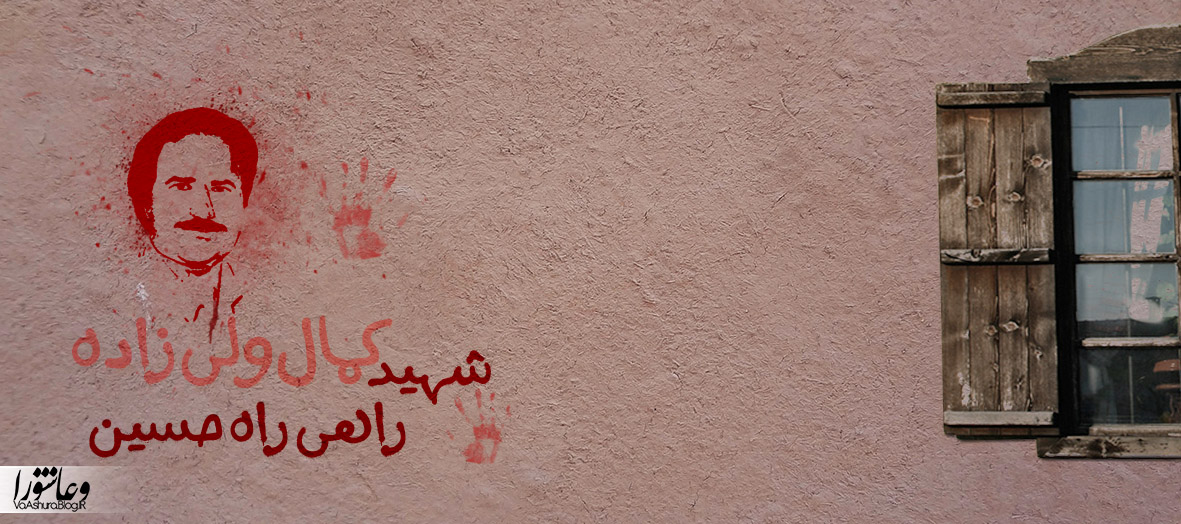 شهید کمال ولی زاده
راهی راه حسین
وعاشورا
VaAshura.Blog.IR